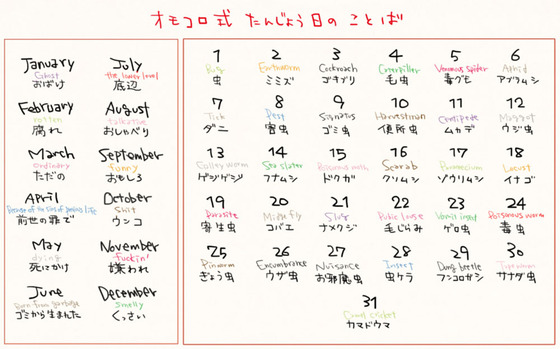 オモコロ式 たんじょう日の ことば
January
Ghost
おばけ
July
the lower level
底辺
February
rotten
腐れ
August
talkative
おしゃべり
March
ordinary
ただの
September
funny
おもしろ
April
前世の罪で
October
Shit
ウンコ
May
dying
死にかけ
November
fuckin'
嫌われ
June
Born from garbage
ゴミから生まれた
December
smelly
くっさい
1
Bug
虫
2
Earthworm
ミミズ
3
Cockroach
ゴキブリ
4
Caterpiller
毛虫
5
Venomous spider
毒グモ
6
Aphid
アブラムシ
7
Tick
ダニ
8
Pest
害虫
9
ゴミ虫
10
Harvestman
便所虫
11
Centipede
ムカデ
12
Maggot
ウジ虫
13
ゲジゲジ
14
Sea slater
フナムシ
15
Poisonous moth
ドクガ
16
Scarab
クソムシ
17
Paramecium
ゾウリムシ
18
Locust
イナゴ
19
Parasite
寄生虫
20
コバエ
21
Slug
ナメクジ
22
Pubic louse
毛じらみ
23
Vomit insect
ゲロ虫
24
Poisonous worm
毒虫
25
Pinworm
ぎょう虫
26
Encumbrance
ウザ虫
27
Nuisance
お邪魔虫
28
Insect
虫ケラ
29
Dung beetle
フンコロガシ
30
Tapeworm
サナダ虫
31
Camel cricket
カマドウマ